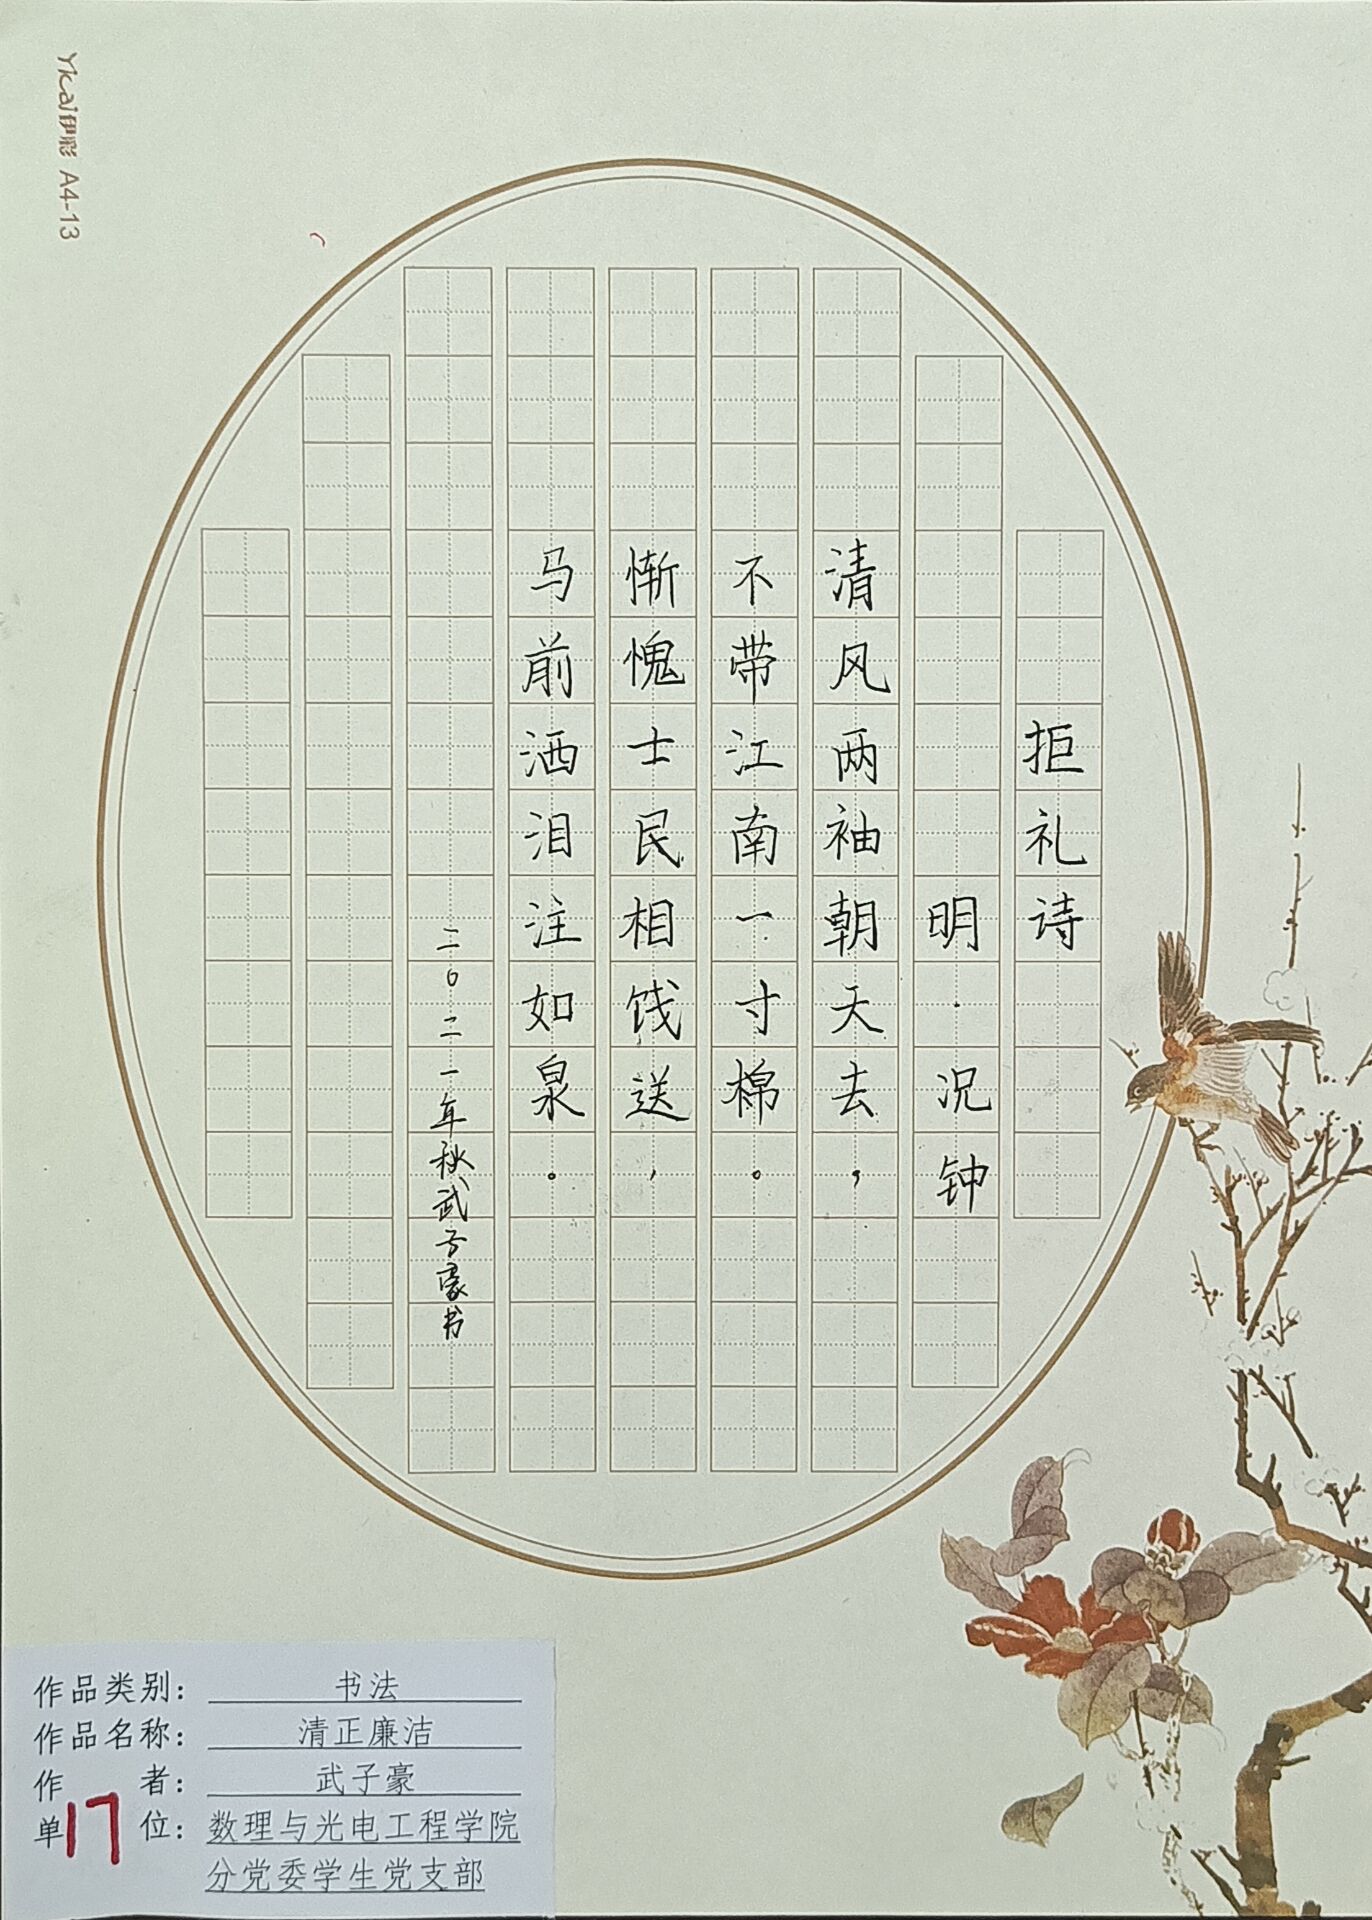 Yicai伊彩 A4-13
拒礼诗
明·况钟
清风两袖朝天去，
不带江南一寸棉。
惭愧士民相饯送，
马前洒泪注如泉。
二〇二一年秋武子豪书
作品类别：书法
作品名称：清正廉洁
作者：武子豪
单位：数理与光电工程学院
分党委学生党支部
17